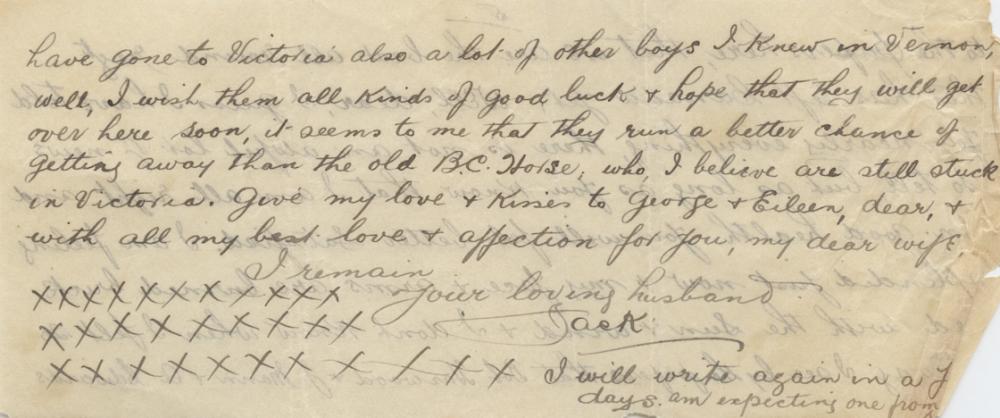 have gone to Victoria also a lot of other boys I knew in Vernon,
well, I wish them all kinds of good luck & hope that they will get
over here soon, it seems to me that they run a better chance of
getting away than the old B.C. Horse, who, I believe are still stuck
in Victoria. Give my love & kisses to George & Eileen, dear, &
with all my best love & affection for you, my dear wife,
I remain
xxxxxxxxxxxx your loving husband
xxxxxxxxxxx Jack
xxxxxxxxxxxxx I will write again in a
days. am expecting one from